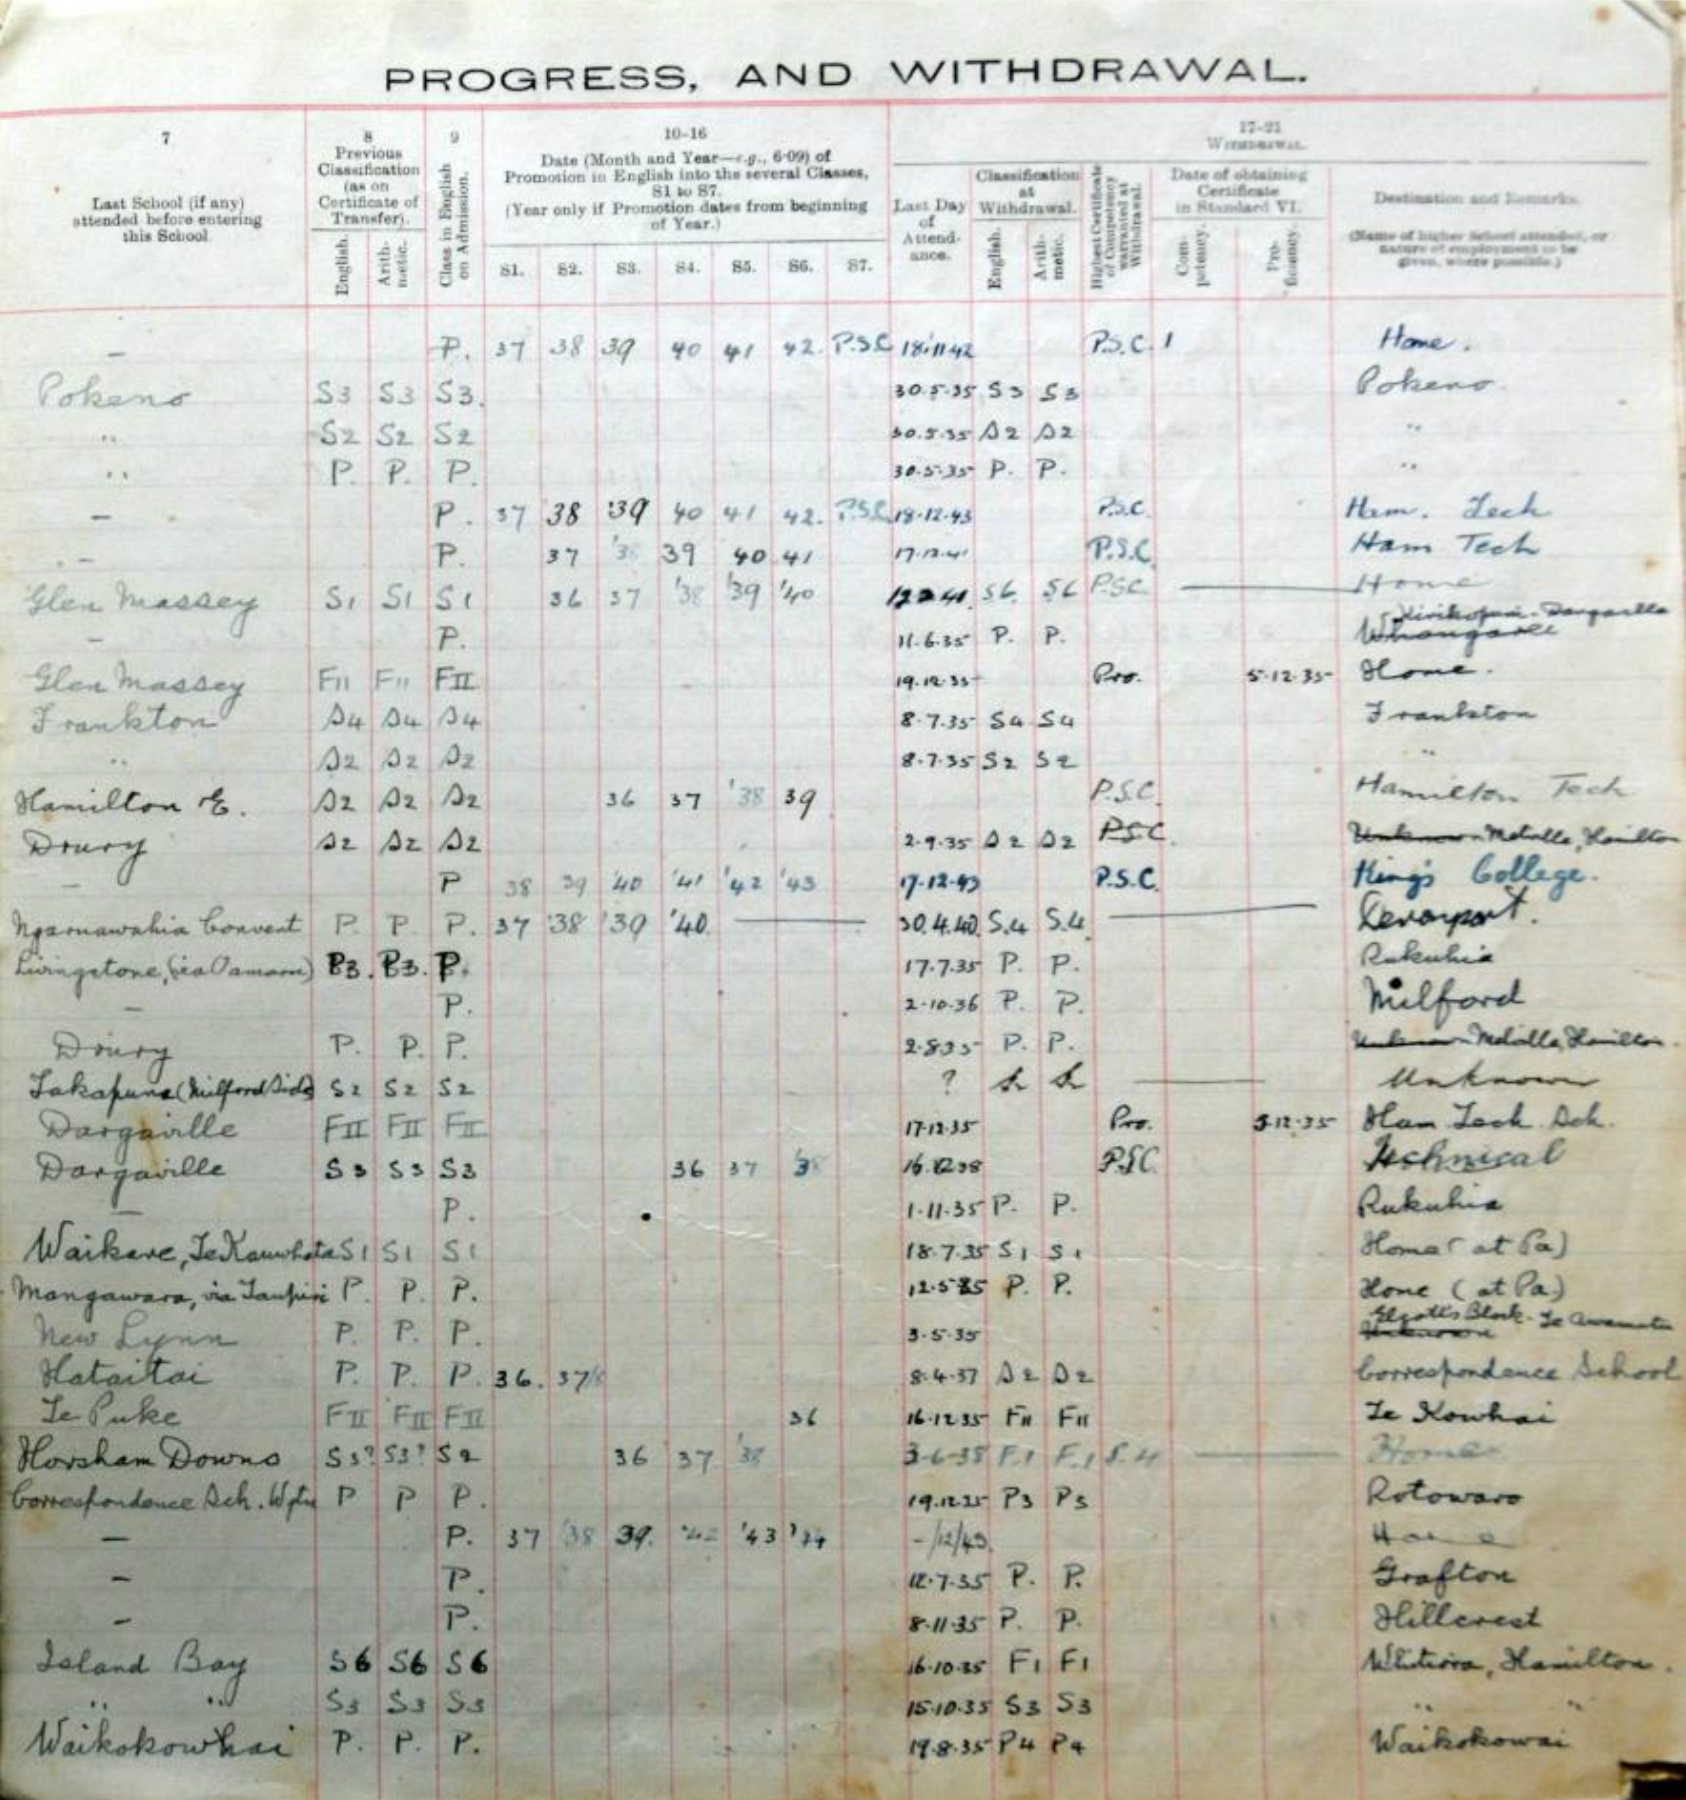 PROGRESS, AND WITHDRAWAL.
7 8 9 10-16 17-21
Last School (if any) attended before entering this School.
Previous Classification (as on Certificate of Transfer).
English. Arithmetic.
Class in English on Admission.
Date (Month and Year—e.g., 6·09) of Promotion in English into the several Classes, S1 to S7.
(Year only if Promotion dates from beginning of Year.)
S1. S2. S3. S4. S5. S6. S7.
Withdrawal.
Last Day of Attendance.
Classification at Withdrawal.
English. Arithmetic.
Highest Certificate of Competency warranted at Withdrawal.
Date of obtaining Certificate in Standard VI.
Competency. Proficiency.
Destination and Remarks.
(Name of higher School attended, or nature of employment to be given, where possible.)
— P. 37 38 39 40 41 42. P.S.C 18.11.42 P.S.C. 1 Home.
Pokeno S3 S3 S3. 30.5.35 S3 S3 Pokeno
" S2 S2 S2 30.5.35 S2 S2 "
" P. P. P. 30.5.35 P. P. "
— P. 37 38 '39 40 41 42. P.S.C. 18.12.43 P.S.C. Ham. Tech
— P. 37 '38 39 40 41 17.12.41 P.S.C. Ham Tech
Glen Massey S1 S1 S1 36 37 '38 '39 '40 S6 S6 P.S.C. — Home
— P. 11.6.35 P. P. Kirikopuni - Dargaville
Whangarei
Glen Massey FII FII FII 19.12.35 Pro. 5.12.35 Home.
Frankton S4 S4 S4 8.7.35 S4 S4 Frankton
" S2 S2 S2 8.7.35 S2 S2 "
Hamilton E. S2 S2 S2 36 37 '38 39 P.S.C. Hamilton Tech
Drury S2 S2 S2 2.9.35 S2 S2 P.S.C. Unknown Melville, Hamilton
— P 38 39 '40 '41 '42 '43 17.12.43 P.S.C. King's College.
Ngaruawahia Convent P. P. P. 37 '38 '39 '40. — 30.4.40 S.4 S.4 — Devonport.
Livingstone, (via Oamaru) P3. P3. P. 17.7.35 P. P. Rukuhia
— P. 2.10.36 P. P. Milford
Drury P. P. P. 2.8.35 P. P. Unknown Melville, Hamilton.
Takapuna (Milford Side) S2 S2 S2 ? — Unknown
Dargaville FII FII FII 17.12.35 Pro. 5.12.35 Ham. Tech. Sch.
Dargaville S3 S3 S3 36 37 '38 16.12.38 P.S.C. Technical
— P. 1.11.35 P. P. Rukuhia
Waikare, Te Kauwhata S1 S1 S1 18.7.35 S1 S1 Home (at Pa)
Mangawara, via Taupiri P. P. P. P. P. Home (at Pa.)
New Lynn P. P. P. 3.5.35 Block - Te Awamutu
Unknown
Hataitai P. P. P. 36. 37 8.4.37 S2 S2 Correspondence School
Te Puke FII FII FII 36 16.12.35 FII FII Te Kowhai
Horsham Downs S3? S3? S2 36 37 '38 3-6-38 F.1 F.1 S.4 — Home
Correspondence Sch. Wgtn P P P. 19.12.35 P3 P3 Rotowaro
— P. 37 '38 39. '43 '44 -/12/43. Home
— P. 12.7.35 P. P. Grafton
— P. 8.11.35 P. P. Hillcrest
Island Bay S6 S6 S6 16.10.35 F1 F1 Whitiora, Hamilton.
" " S3 S3 S3 15.10.35 S3 S3 " "
Waikokowhai P. P. P. 19.8.35 P4 P4 Waikokowai